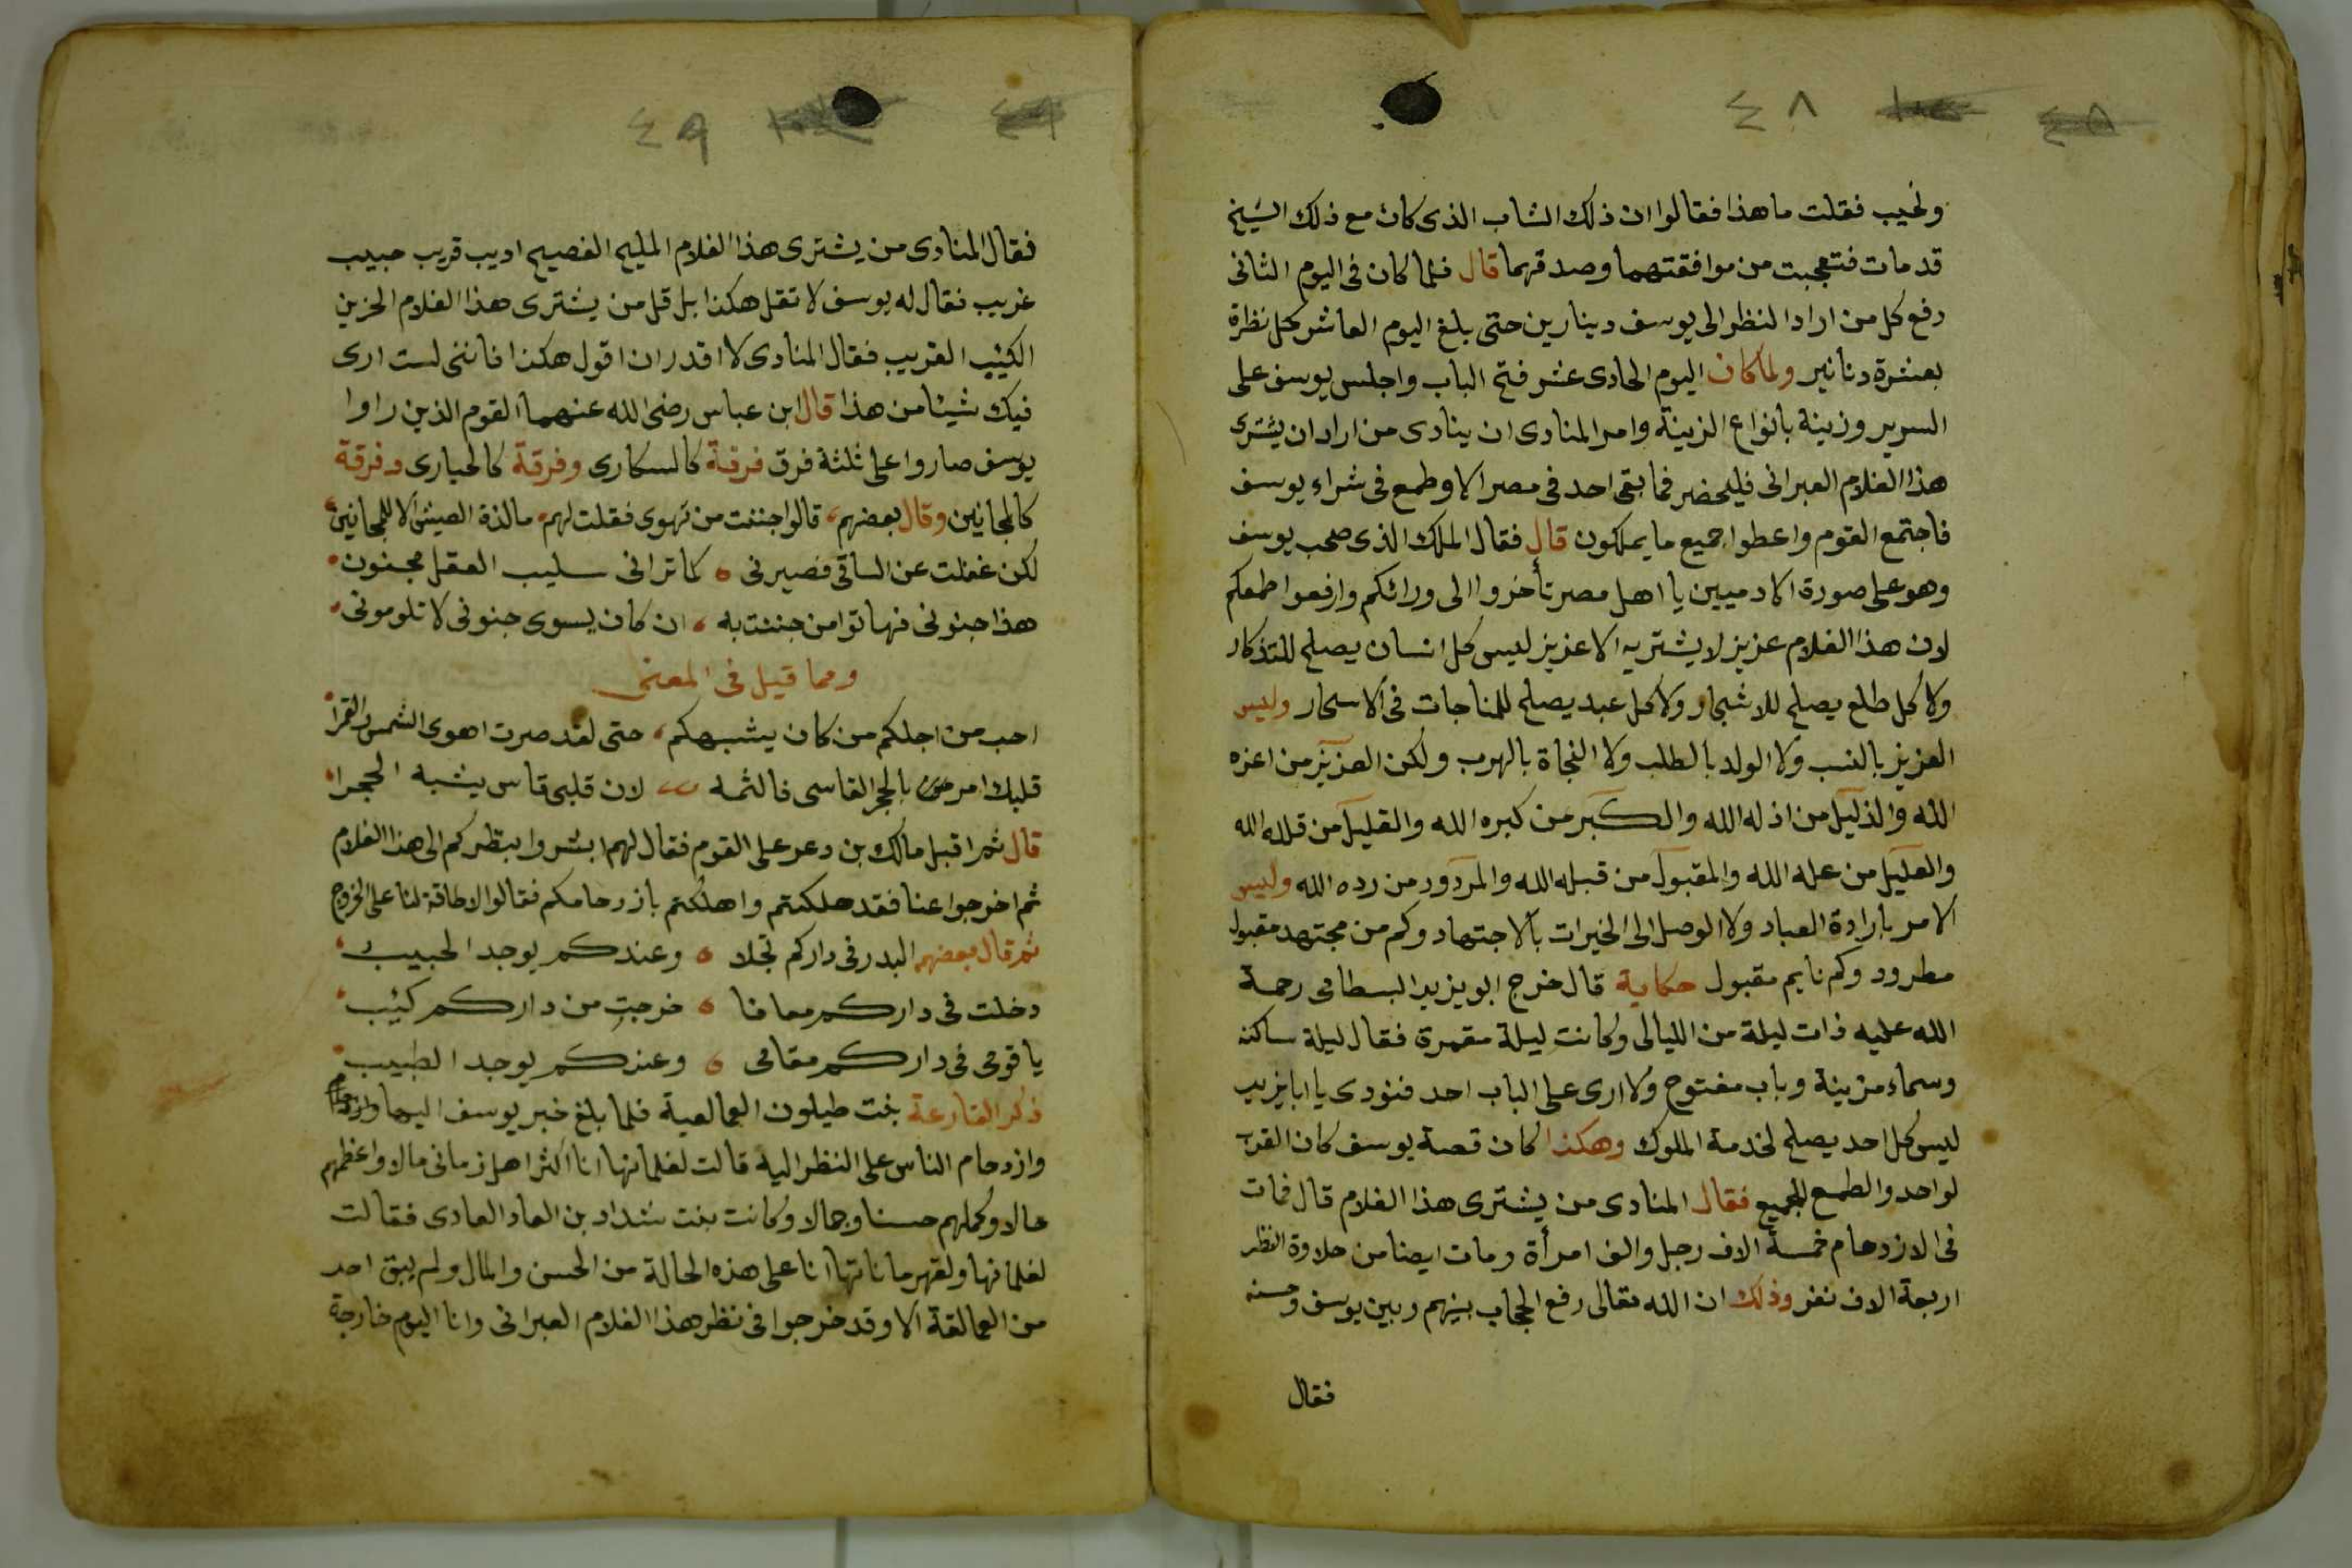 ٤٨
ونحيب فقلت ما هذا فقالوا ان ذلك الشاب الذى كان مع ذلك الشيخ
قد مات فتعجبت من موافقتهما وصدقهما قال فلما كان فى اليوم الثانى
دفع كل من اراد النظر الى يوسف دينارين حتى بلغ اليوم العاشر كل نظرة
بعشرة دنانير ولما كان اليوم الحادى عشر فتح الباب واجلس يوسف على
السرير وزينه بانواع الزينة وامر المنادى ان ينادى من اراد ان يشترى
هذا الغلام العبرانى فليحضر فما بقى احد فى مصر الا وطمع فى شراء يوسف
فاجتمع القوم واعطوا جميع ما يملكون قال فقال الملك الذى صحب يوسف
وهو على صورة الادميين يا اهل مصر تأخروا الى ورائكم وارفعوا طمعكم
لان هذا الغلام عزيز لا يشتريه الا عزيز ليس كل انسان يصلح للتذكار
ولا كل طلع يصلح للاشجار ولا كل عبد يصلح للمناجات فى الاسحار وليس
العزيز بالنسب ولا الولد بالطلب ولا النجاة بالهرب ولكن العزيز من اعزه
الله والذليل من اذله الله والكبير من كبره الله والقليل من قلله الله
والعليل من عله الله والمقبول من قبله الله والمردود من رده الله وليس
الامر بارادة العباد ولا الوصل الى الخيرات بالاجتهاد وكم من مجتهد مقبول
مطرود وكم نايم مقبول حكاية قال خرج ابو يزيد البسطامى رحمة
الله عليه ذات ليلة من الليالى وكانت ليلة مقمرة فقال ليلة ساكنه
وسماء مزينة وباب مفتوح ولا ارى على الباب احد فنودى يا ابا يزيد
ليس كل احد يصلح لخدمة الملوك وهكذا كان قصة يوسف كان القرب
لواحد والطمع للجميع فقال المنادى من يشترى هذا الغلام قال فمات
فى الازدحام خمسة الاف رجل والف امرأة ومات ايضا من حلاوة النظر
اربعة الاف نفر وذلك ان الله تعالى رفع الحجاب بينهم وبين يوسف وحسنه
فقال
٤٩
فقال المنادى من يشترى هذا الغلام المليح الفصيح اديب قريب حبيب
غريب فقال له يوسف لا تقل هكذا بل قل من يشترى هذا الغلام الحزين
الكئيب الغريب فقال المنادى لا اقدر ان اقول هكذا فاننى لست ارى
فيك شيئا من هذا قال ابن عباس رضى الله عنهما القوم الذين راوا
يوسف صاروا على ثلثة فرق فرقة كالسكارى وفرقة كالحيارى وفرقة
كالمجانين وقال بعضهم قالوا جننت من تهوى فقلت لهم ما لذة العيش الا للمجانين
لكن غفلت عن الساقى فصيرنى كما ترانى سليب العقل مجنون
هذا جنونى فهاتوا من جننت به ان كان يسوى جنونى لا تلومونى
ومما قيل فى المعنى
احب من اجلكم من كان يشبهكم حتى لقد صرت اهوى الشمس والقمرا
قلبك امر بالحجر القاسى فالثمه لان قلبى قاس يشبه الحجرا
قال ثم اقبل مالك بن دعر على القوم فقال لهم ابشروا بنظركم الى هذا الغلام
ثم اخرجوا عنا فقد هلكتم واهلكتم بازدحامكم فقالوا لا طاقة لنا على الخروج
ثم قال بعضهم البدر فى داركم تجلا وعندكم يوجد الحبيب
دخلت فى داركم معافا خرجت من داركم كئيب
يا قومى فى داركم مقامى وعندكم يوجد الطبيب
ذكر القارعة بنت طيلون العمالعية فلما بلغ خبر يوسف اليها
وازدحام الناس على النظر اليه قالت لغلمانها انا اكثر اهل زمانى مالا واعظمهم
حالا وكملهم حسنا وجمالا وكانت بنت شداد بن العاد العادى فقالت
لغلمانها ولقهرماناتها انا على هذه الحالة من الحسن والمال ولم يبق احد
من العمالقة الا وقد خرجوا فى نظر هذا الغلام العبرانى وانا اليوم خارجة